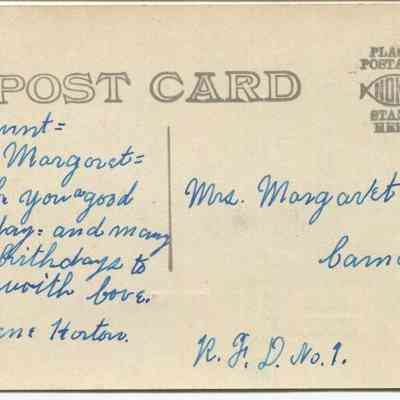 POST CARD
PLAC
POSTA
NOKO
STA
HER
unt=
Margaret=
you a good
day= and many
birthdays to
with love.
ene Horton.
Mrs. Margaret
Cam
R. F. D. No. 1.